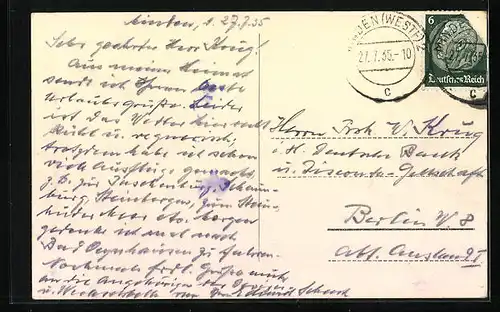 Minden, d. 27.7.35
Sehr geehrter Herr Krug!
Aus meiner Heimat
sende ich Ihnen beste
Urlaubsgrüße. Leider
ist das Wetter hier recht
kühl u. regnerisch,
trotzdem habe ich schon
viel Ausflüge gemacht,
z. B. zur Schaum-
burg, zum Stein-
huder Meer etc. Morgen
gedenke ich mal nach
Bad Oeynhausen zu fahren.
Nochmals frdl. Grüße auch
an die Angehörigen
u. von Edmund
MINDEN (WESTF) 2
27.7.35.-10
c
6
Deutsches Reich
c
Herrn Frdr. W. Krug
i. H. Deutsche Bank
u. Disconto-Gesellschaft
Berlin W 8
Abt. Ausland I